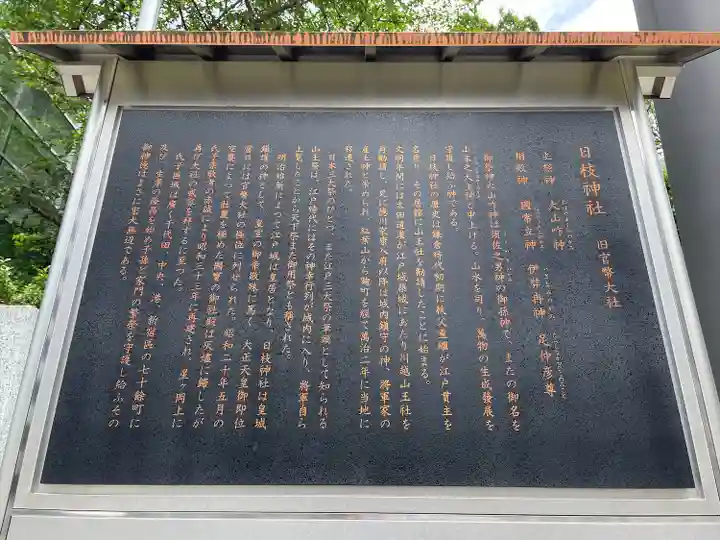 日枝神社 旧官幣大社
主祭神 大山咋神
相殿神 國常立神 伊弉冉神 足仲彦尊
御祭神大山咋神は須佐之男神の御孫神で、またの御名を
山末之大主神と申し上げる。山水を司り、萬物の生成發展を
守護し給ふ神である。
日枝神社の歴史は鎌倉時代初期に秩父重継が江戸貫主を
名乗り、その居館に山王社を勧請したことに始まる。
文明年間には太田道灌が江戸城築城にあたり川越山王社を
再勧請し、更に徳川家康入府以降は城内鎮守の神、将軍家の
産土神と崇められ、紅葉山から麹町を経て萬治二年に当地に
移遷された。
日本三大祭のひとつ、また江戸三大祭の筆頭として知られる
山王祭は、江戸時代にはその神幸行列が城内に入り、将軍自ら
上覧したことから天下祭また御用祭とも稱された。
明治維新によって江戸城は皇居となり、日枝神社は皇城
鎮護の神として、皇室の御崇敬殊に篤く、大正天皇御即位
當日には官幣大社の極位に列せられた。昭和二十年五月の
空襲によって壮麗を極めた國寶の御社殿は灰燼に歸したが
氏子崇敬者の赤誠により昭和三十三年に再建され、星ヶ岡上に
再び大社の威容を拝するに至った。
氏子区域は廣く千代田、中央、港、新宿区の七十餘町に
及び、生業の隆昌を始め子孫と家門の繁榮を守護し給ふその
御神徳はまことに宏大無辺である。